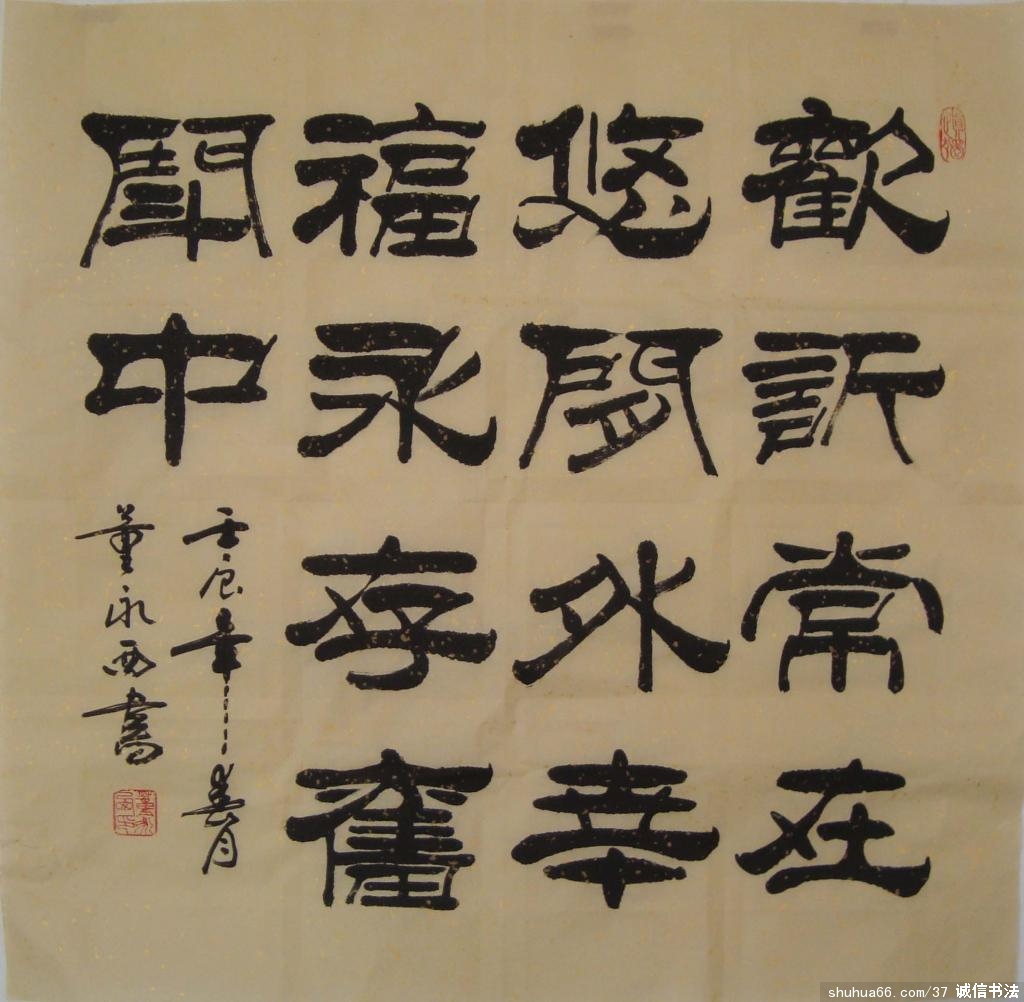 歡訢常在
悠閒外幸
福永存奮
鬥中
壬辰年春月
董永西書
shuhua66.com/37 诚信书法